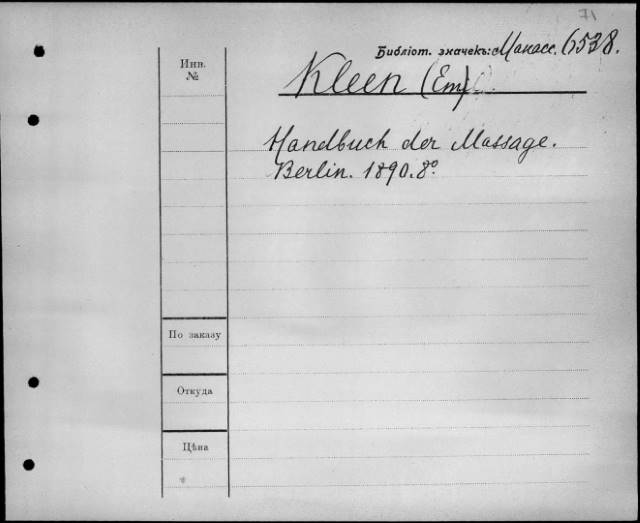 71
Библіот. значекъ: Манасс. 6538.
Инв.
№
Kleen (Em)
Handbuch der Massage.
Berlin. 1890. 8°.
По заказу
Откуда
Цѣна